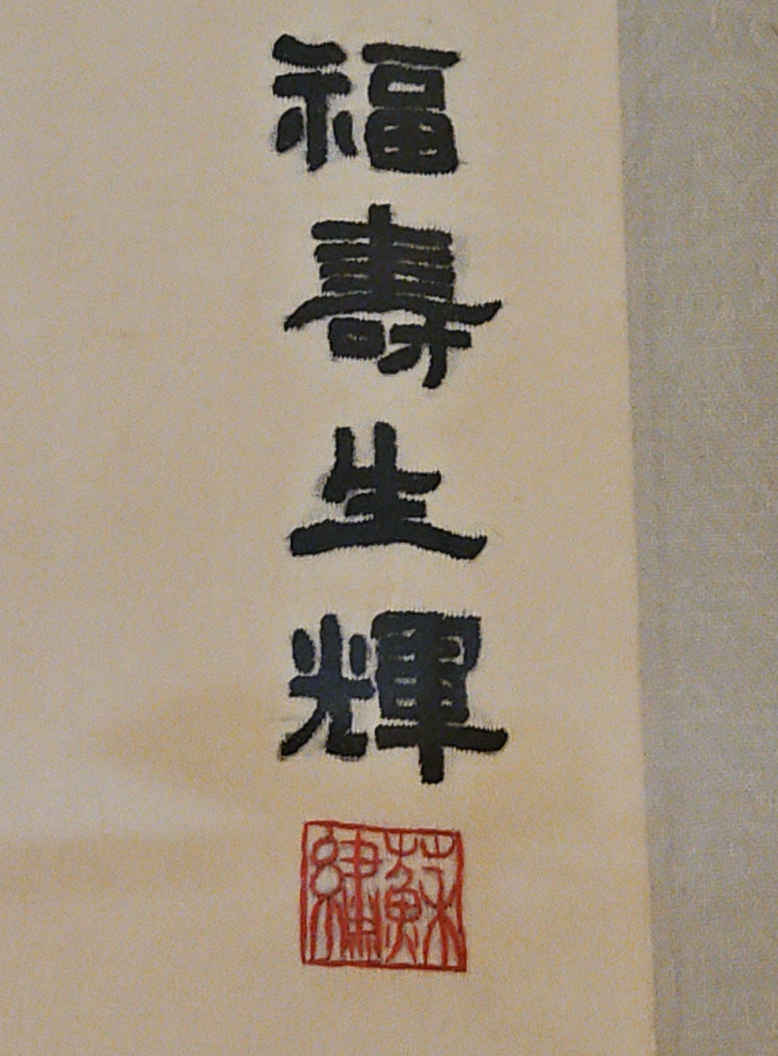 福壽生輝
蘇繡